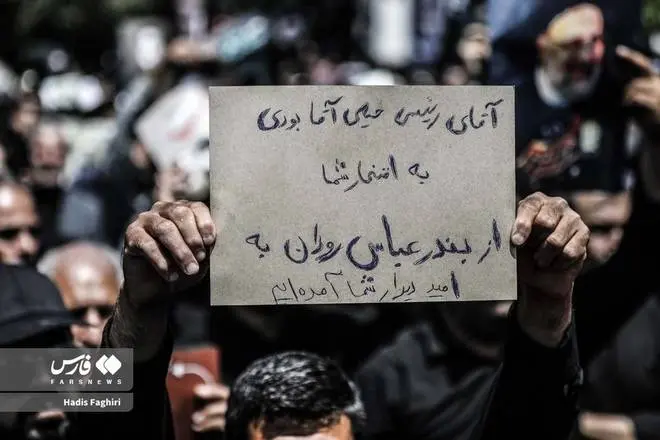 آقای رئیسی خیلی آقا بودی
به افتخار شما
از بندرعباس رودان به
امید دیدار شما آمده‌ایم
فارس
FARSNEWS
Hadis Faghiri